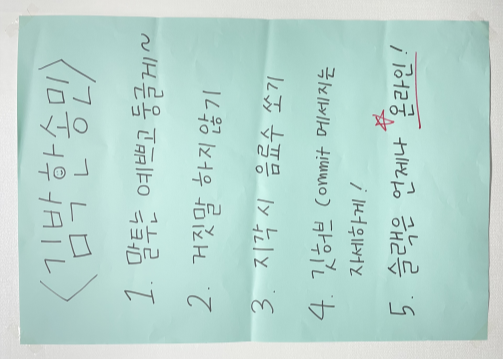 <김박한송민>
1. 말투는 예쁘고 둥글게~
2. 거짓말 하지않기
3. 지각 시 음료수 쏘기
4. 깃허브 Commit 메세지는
자세하게!
5. 슬랙은 언제나 ☆온라인!